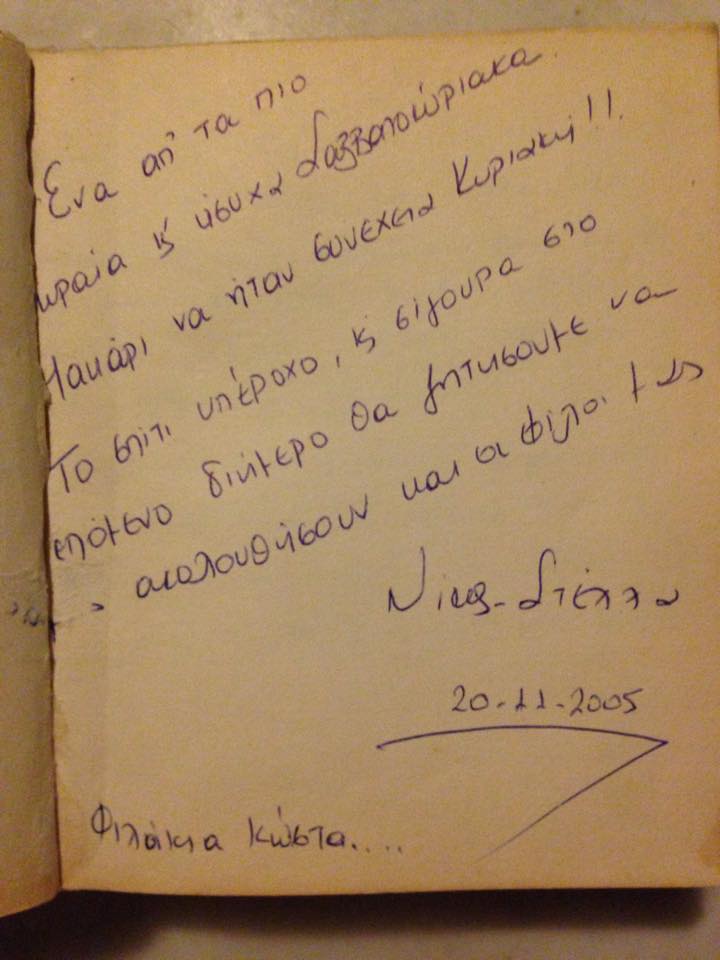 Ενα απ' τα πιο
ωραία κ' ήσυχα Σαββατοκύριακα.
Μακάρι να ήταν συνέχεια Κυριακή!!
Το σπίτι υπέροχο, κ' σίγουρα στο
επόμενο διήμερο θα ζητήσουμε να
ακολουθήσουν και οι φίλοι μας
Νίκος - Στέλλα
20-11-2005
Φιλάκια Κώστα....